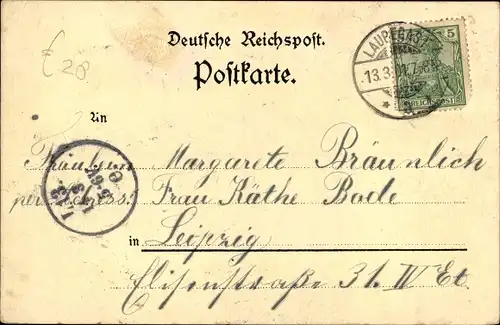 Deutsche Reichspost.
Postkarte.
LAUBEGAST
13.3.01.7-8
5
REICHSPOST
€ 28
An
Fräulein Margarete Bräunlich
per Adress: Frau Käthe Bode
in Leipzig
Elisenstraße 31. IV Et